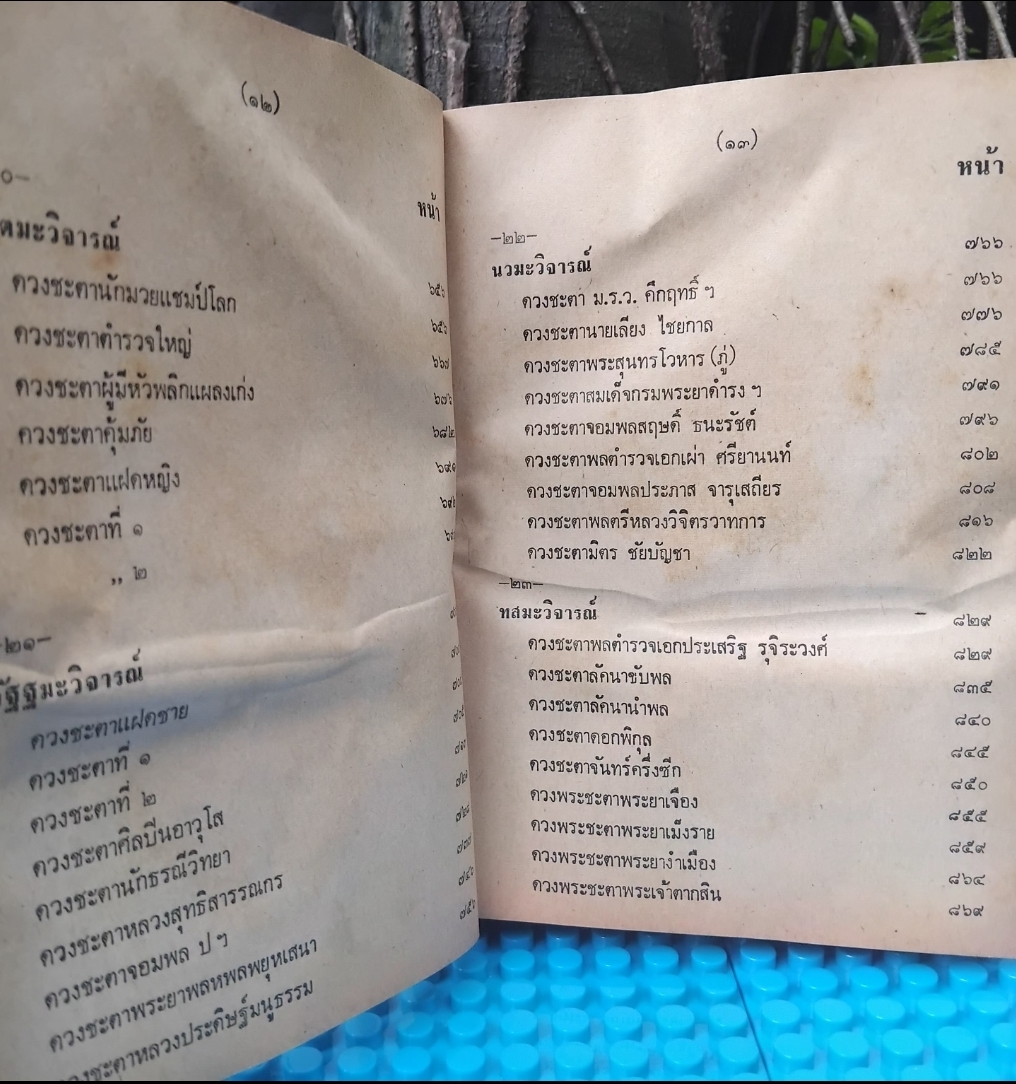 (๑๒)
หน้า
ตมะวิจารณ์ ๖๕๖
ดวงชะตานักมวยแชมป์โลก ๖๕๖
ดวงชะตาตำรวจใหญ่ ๖๖๗
ดวงชะตาผู้มีหัวพลิกแผลงเก่ง ๖๗๖
ดวงชะตาคุ้มภัย ๖๘๒
ดวงชะตาแฝดหญิง ๖๙๑
ดวงชะตาที่ ๑
,, ๒
-๒๑-
ัฐฐมะวิจารณ์
ดวงชะตาแฝดชาย
ดวงชะตาที่ ๑
ดวงชะตาที่ ๒
ดวงชะตาศิลปีนอาวุโส
ดวงชะตานักธรณีวิทยา
ดวงชะตาหลวงสุทธิสารรณกร
ดวงชะตาจอมพล ป ฯ
ดวงชะตาพระยาพหลพลพยุหเสนา
ดวงชะตาหลวงประดิษฐ์มนูธรรม
(๑๓)
หน้า
-๒๒-
นวมะวิจารณ์ ๗๖๖
ดวงชะตา ม.ร.ว. คึกฤทธิ์ ฯ ๗๖๖
ดวงชะตานายเลียง ไชยกาล ๗๗๖
ดวงชะตาพระสุนทรโวหาร (ภู่) ๗๘๕
ดวงชะตาสมเด็จกรมพระยาดำรง ฯ ๗๙๑
ดวงชะตาจอมพลสฤษดิ์ ธนะรัชต์ ๗๙๖
ดวงชะตาพลตำรวจเอกเผ่า ศรียานนท์ ๘๐๒
ดวงชะตาจอมพลประภาส จารุเสถียร ๘๐๘
ดวงชะตาพลตรีหลวงวิจิตรวาทการ ๘๑๖
ดวงชะตามิตร ชัยบัญชา ๘๒๒
-๒๓-
ทสมะวิจารณ์ ๘๒๙
ดวงชะตาพลตำรวจเอกประเสริฐ รุจิระวงศ์ ๘๒๙
ดวงชะตาลัคนาขับพล ๘๓๕
ดวงชะตาลัคนานำพล ๘๔๐
ดวงชะตาดอกพิกุล ๘๔๕
ดวงชะตาจันทร์ครึ่งซีก ๘๕๐
ดวงพระชะตาพระยาเจือง ๘๕๕
ดวงพระชะตาพระยาเม็งราย ๘๕๙
ดวงพระชะตาพระยางำเมือง ๘๖๔
ดวงพระชะตาพระเจ้าตากสิน ๘๖๙